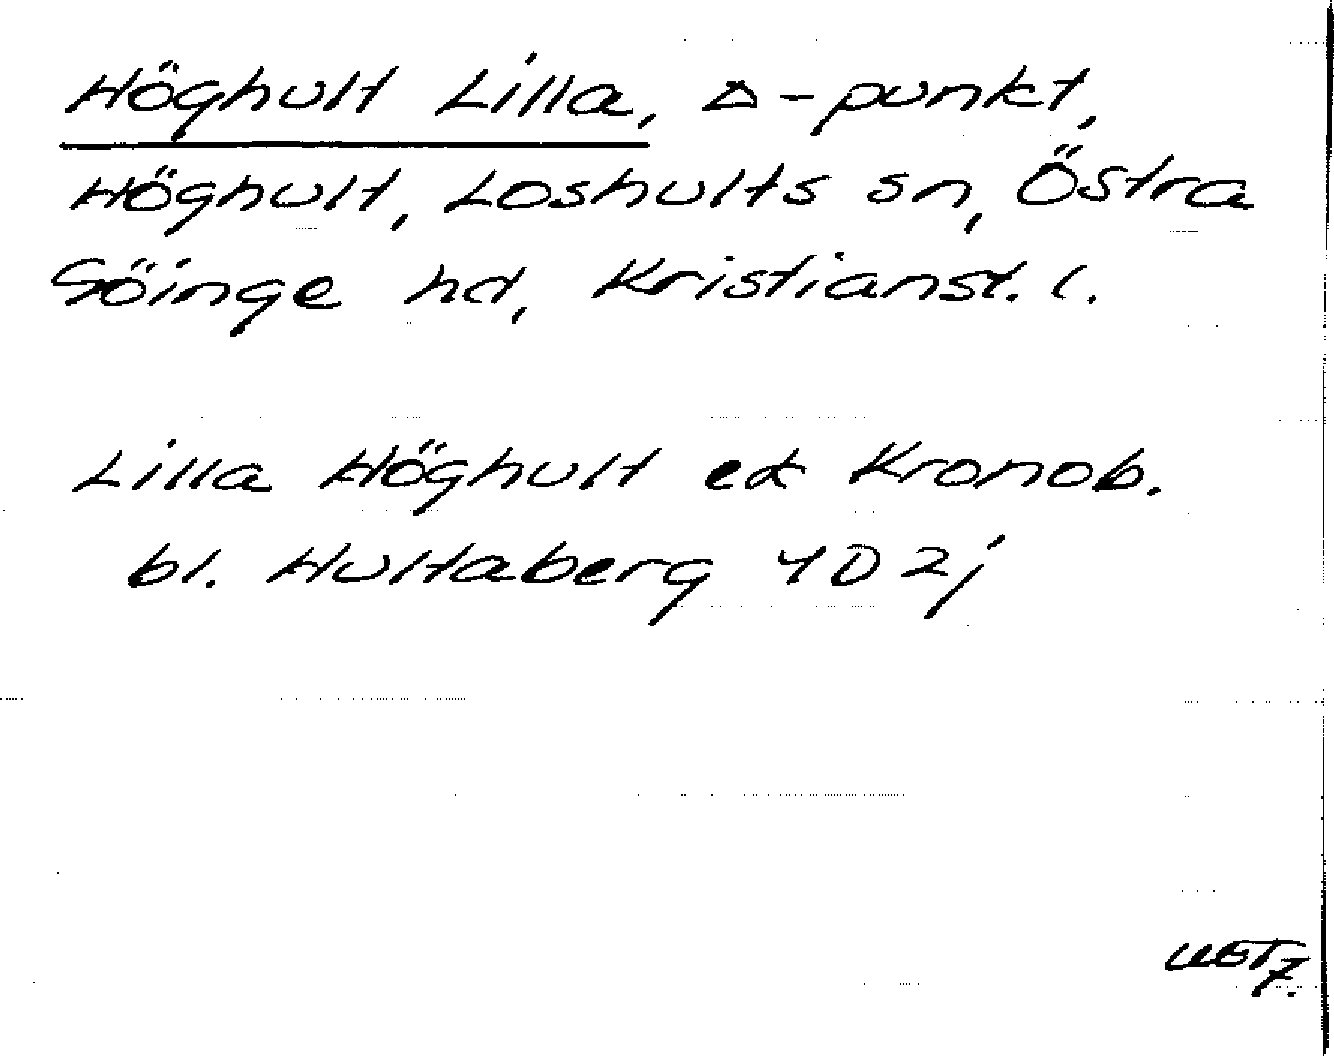 Höghult Lilla, △-punkt,
Höghult, Loshults sn, Östra
Göinge hd, Kristianst. l.
Lilla Höghult ek Kronob.
bl. Hultaberg 4D 2j